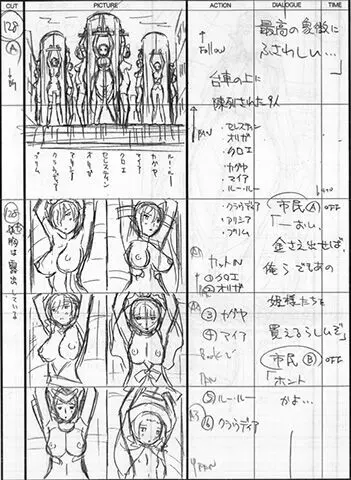 CUT
PICTURE
ACTION
DIALOGUE
TIME
128
A
Follow
最高の象徴に
ふさわしい…」
台車の上に
陳列された9人
PAN
・セレスティン
・オリガ
・クロエ
・カグヤ
・マイア
・ルー・ルー
・クラウディア
・アリシア
・プリム
プリム
アリシア
クラウディア
オリガ
セレスティン
クロエ
マイア
カグヤ
ルー・ルー
胸は露出している
カットIN
①クロエ
②オリガ
③カグヤ
④マイア
Bookで
PAN
⑤ルー・ルー
⑥クラウディア
PAN
市民Ⓐ OFF
「―おい、
金さえ出せば、
俺らでもあの
姫様たちを
買えるらしいぞ」
市民Ⓑ OFF
「ホント
かよ…